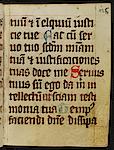 tuū ⁊ ī elquiū iusti
cie tue Fac cū ser
uo tuo scdm miam
tuā ⁊ iustificaciones
tuas doce me Seruus
tuus sū ego da m in
tellectū ut sciam testi
monia tua Tempꝰ
faciendi dūe dissipa